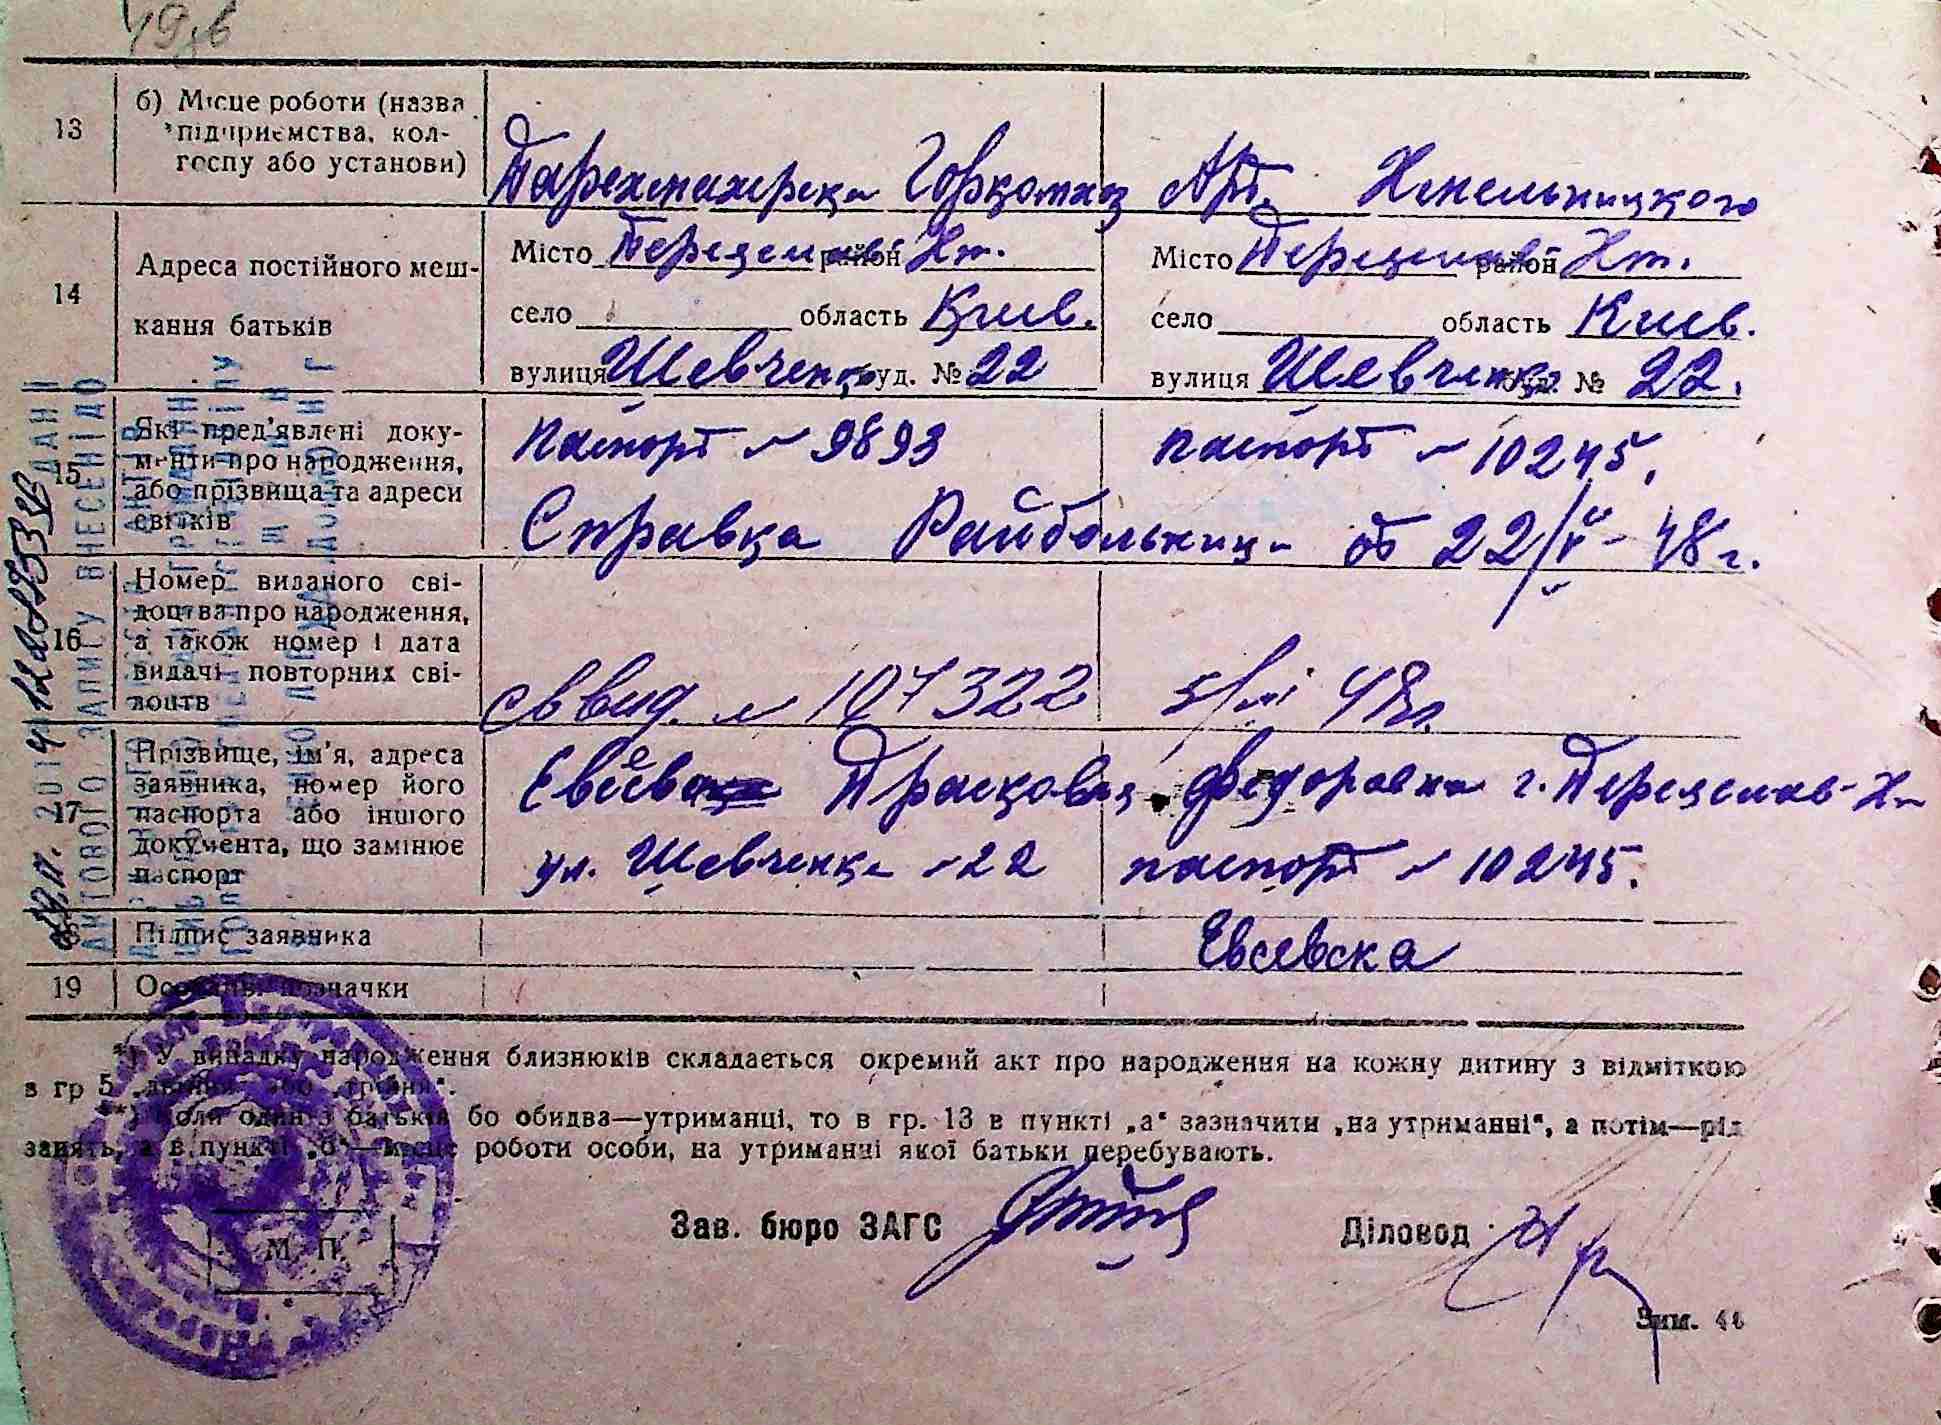 13
б) Місце роботи (назва
підприємства, кол-
госпу або установи)
Парехмахерска Горкомхоз Арт. Хмельницкого
14
Адреса постійного меш-
кання батьків
Місто Переяслав район Хм. Місто Переяслав район Хм.
село область Киев. село область Киев.
вулиця Шевченка буд. № 22 вулиця Шевченка буд. № 22.
15
Які пред'явлені доку-
менти про народження,
або прізвища та адреси
свідків
паспорт № 9893 паспорт № 10245.
Справка Райбольници об 22/V-48 г.
16
Номер виданого сві-
доцтва про народження,
а також номер і дата
видачі повторних сві-
доцтв
Свид. № 107322 5/VI 48г.
17
Прізвище, ім'я, адреса
заявника, номер його
паспорта або іншого
документа, що замінює
паспорт
Прасковия Федоровна г. Переяслав-Хм
ул. Шевченка №22 паспорт № 10245.
18
Підпис заявника
Евсевска
19
Особливі позначки
*) У випадку народження близнюків складається окремий акт про народження на кожну дитину з відміткою
в гр 5 „двійня" або „трійня".
**) Коли один з батьків або обидва—утриманці, то в гр. 13 в пункті „а" зазначити „на утриманні", а потім—рід
занять, а в пункті „б"—місце роботи особи, на утриманні якої батьки перебувають.
Зав. бюро ЗАГС
Діловод
М. П.